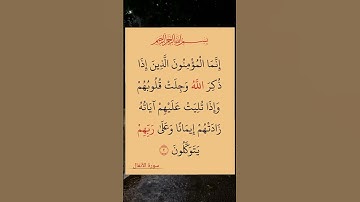 بسم الله الرحمن الرحيم
إِنَّمَا الْمُؤْمِنُونَ الَّذِينَ إِذَا
ذُكِرَ اللَّهُ وَجِلَتْ قُلُوبُهُمْ
وَإِذَا تُلِيَتْ عَلَيْهِمْ آيَاتُهُ
زَادَتْهُمْ إِيمَانًا وَعَلَىٰ رَبِّهِمْ
يَتَوَكَّلُونَ ﴿٢﴾
سورة الأنفال